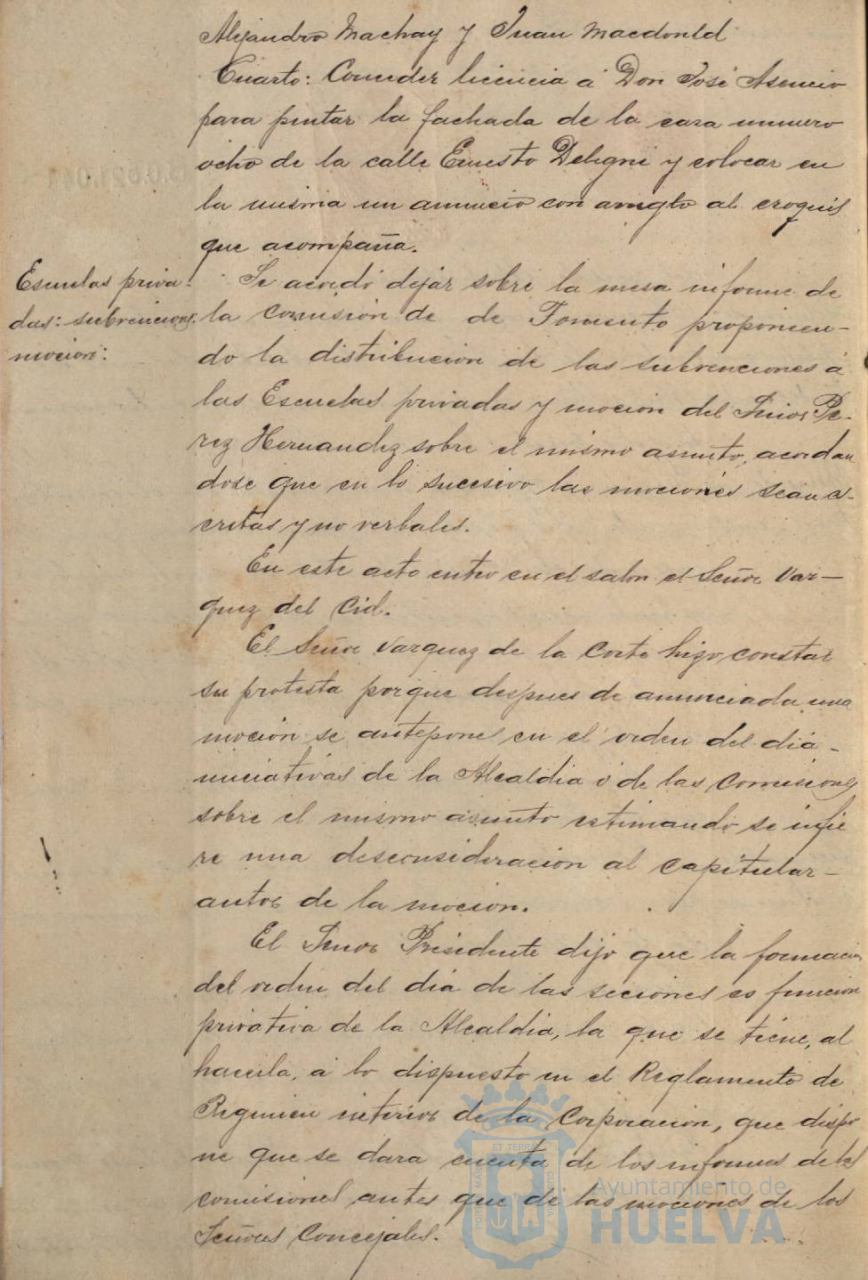 Alejandro Machay y Juan Macdonld
Cuarto: Conceder licencia á Don José Asencio
para pintar la fachada de la casa numero
ocho de la calle Ernesto Deligni y colocar en
la misma un anuncio con arreglo al croquis
que acompaña.
Escuelas priva-
das: subvenciones.
mocion:
Se acordó dejar sobre la mesa informe de
la Comisión de de Fomento proponien-
do la distribución de las subvenciones á
las Escuelas privadas y moción del Señor Pe-
rez Hernandez sobre el mismo asunto, acordan
dose que en lo sucesivo las mociones sean es-
critas y no verbales.
En este acto entro en el salon el Señor Vaz-
quez del Cid.
El Señor Vazquez de la Corte hizo constar
su protesta porque despues de anunciada una
moción se antepones en el orden del dia-
iniciativas de la Alcaldia ó de las Comisiones
sobre el mismo asunto estimando se infie
re una desconsideracion al capitular-
autor de la mocion.
El Señor Presidente dijo que la formacion
del orden del dia de las secciones es funcion
privativa de la Alcaldia, la que se tiene, al
hacerla, á lo dispuesto en el Reglamento de
Regimen interior de la Corporacion, que dispo
ne que se dara cuenta de los informes de las
comisiones antes que de las mociones de los
Señores Concejales.
Ayuntamiento de
HUELVA